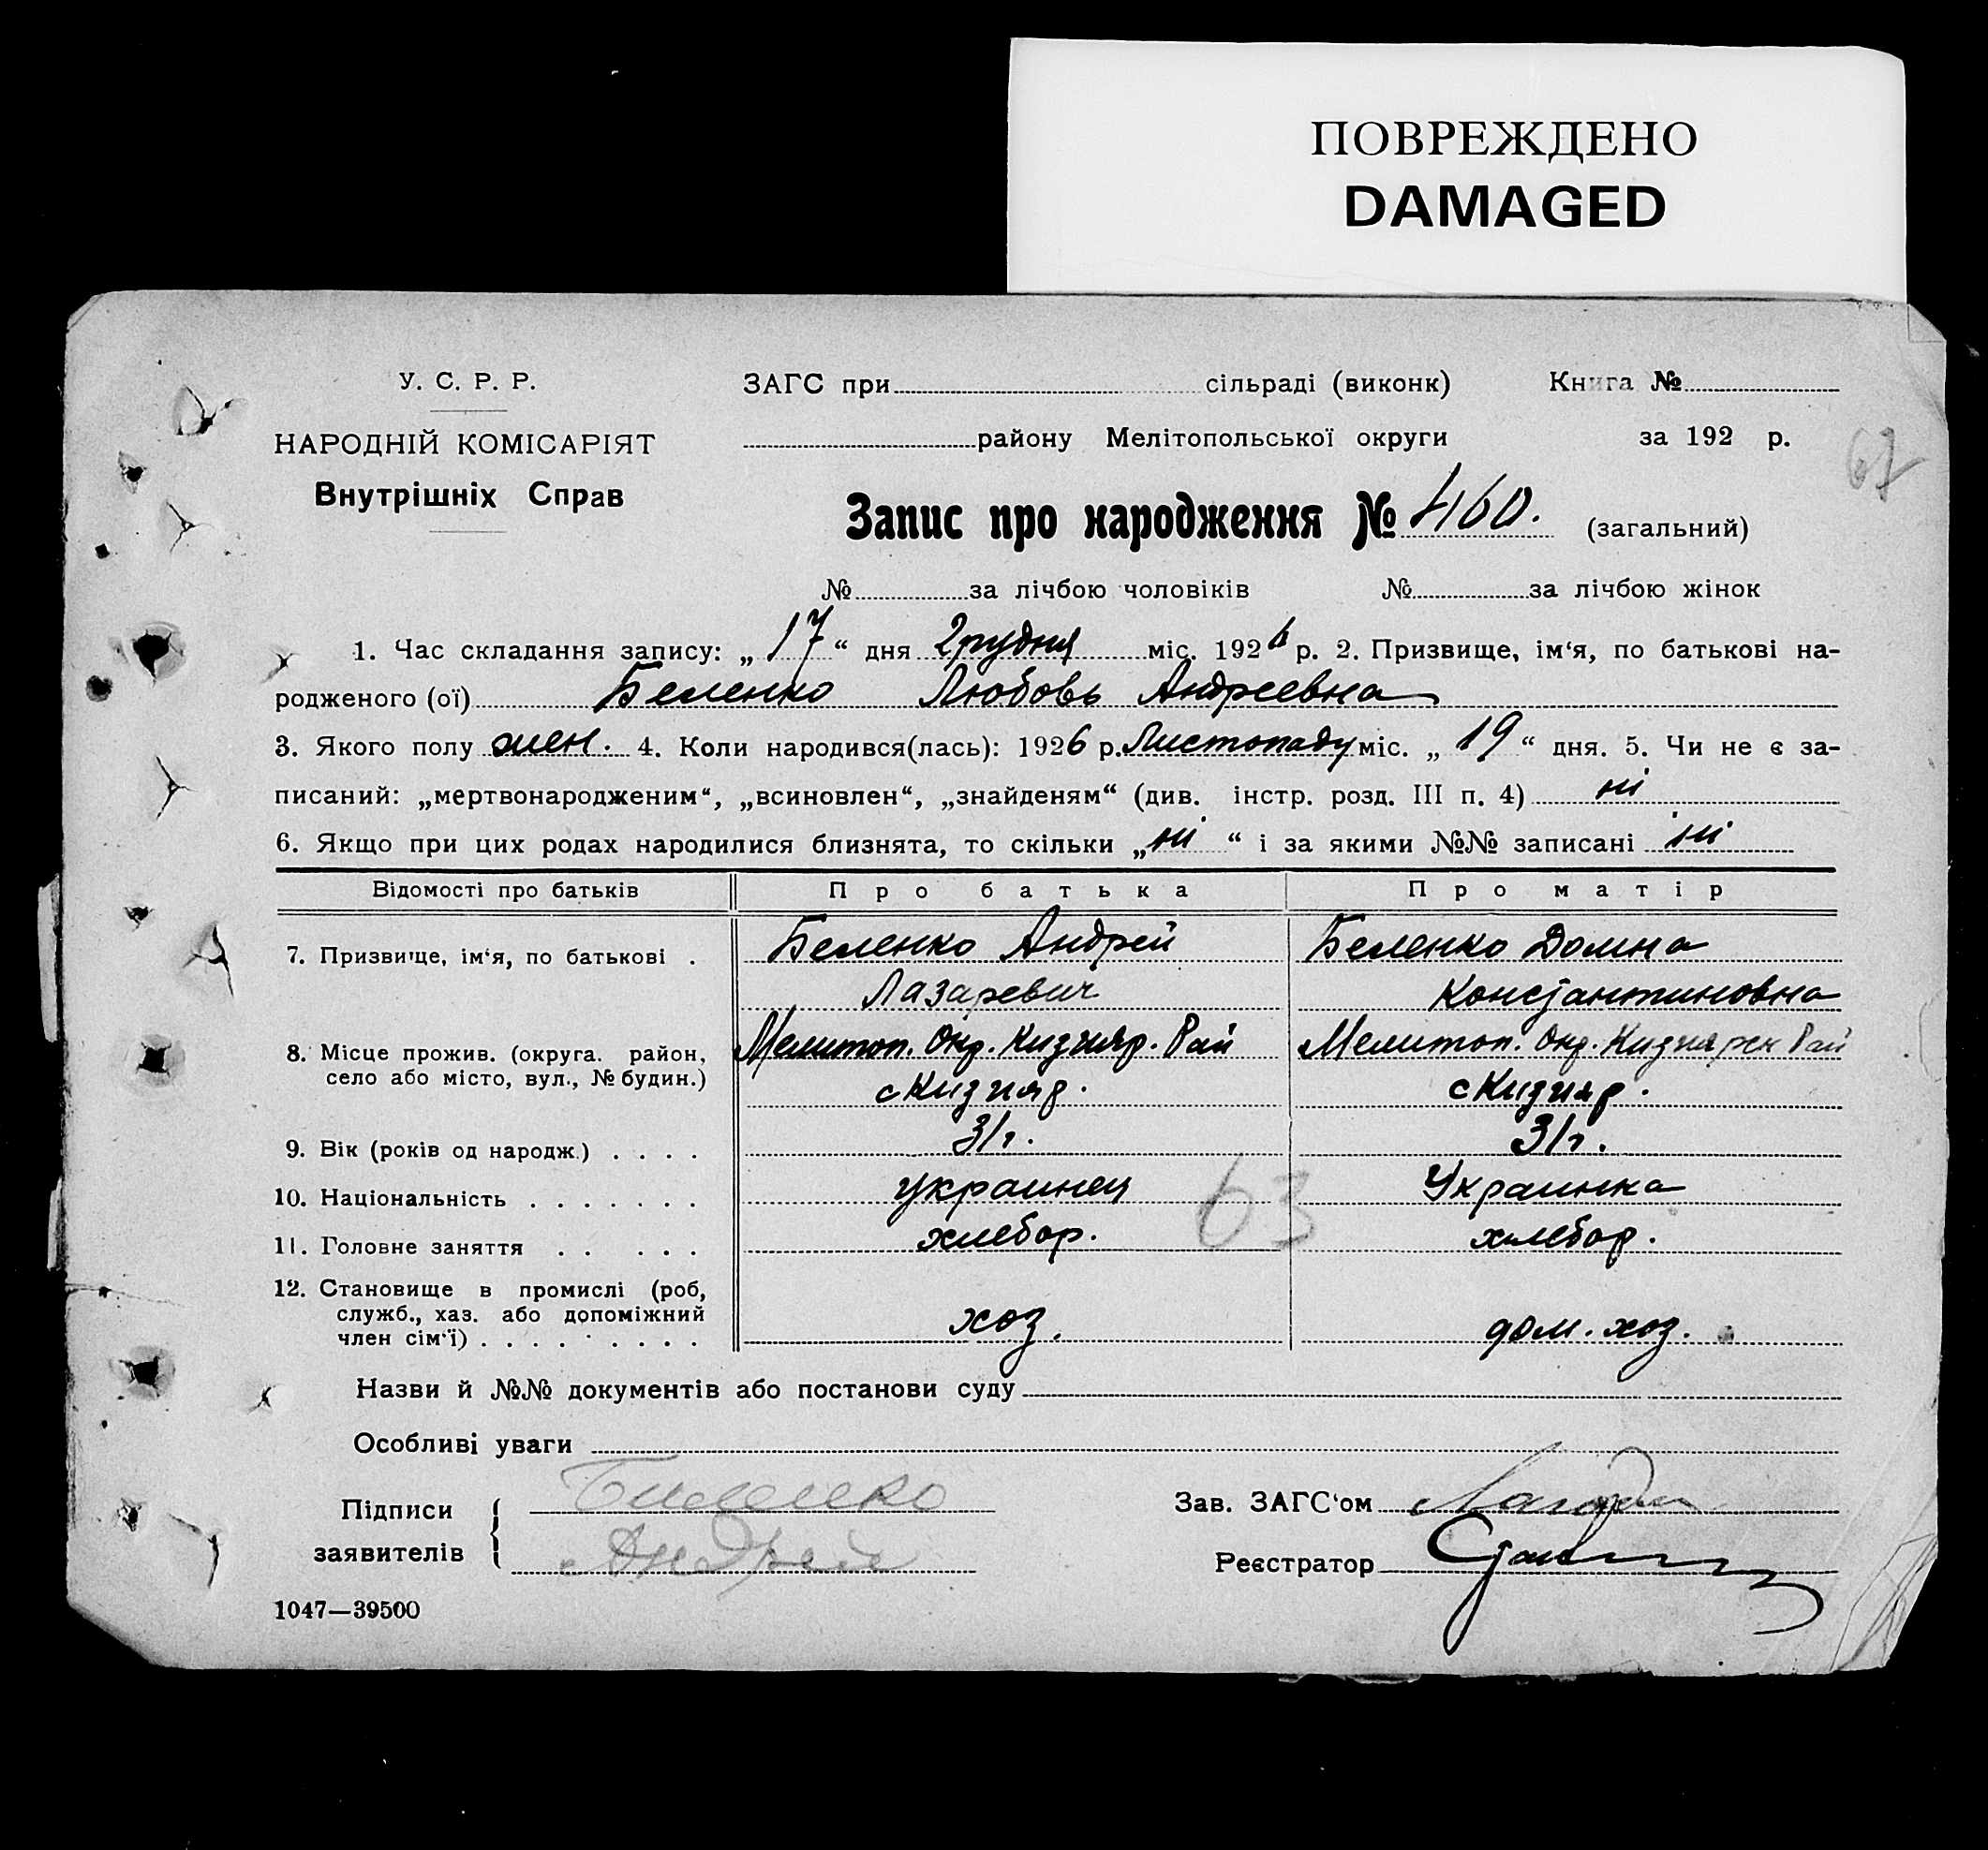 ПОВРЕЖДЕНО
DAMAGED
У. С. Р. Р.
ЗАГС при сільраді (виконк) Книга №
НАРОДНІЙ КОМІСАРІЯТ
району Мелітопольської округи за 192 р.
67
Внутрішніх Справ
Запис про народження № 460. (загальний)
№ за лічбою чоловіків № за лічбою жінок
1. Час складання запису: „ 17 “ дня Грудня міс. 1926 р. 2. Призвище, ім‘я, по батькові на-
родженого (ої) Беленко Любовь Андреевна
3. Якого полу жен. 4. Коли народився(лась): 1926 р. Листопаду міс. „ 19 “ дня. 5. Чи не є за-
писаний: „мертвонародженим“, „всиновлен“, „знайденям“ (див. інстр. розд. III п. 4) ні
6. Якщо при цих родах народилися близнята, то скільки „ ні “ і за якими №№ записані ні
Відомості про батьків Про батька Про матір
7. Призвище, ім‘я, по батькові . Беленко Андрей Беленко Домна
Лазаревич Константиновна
8. Місце прожив. (округа. район, Мелитоп. Окр. Кизияр. Рай Мелитоп. Окр. Кизиярск Рай
село або місто, вул., № будин.) с Кизияр. с Кизияр.
9. Вік (років од народж.) . . . . 31 г. 31 г.
10. Національність . . . . . . . украинец Украинка
63
11. Головне заняття . . . . . хлебор. хлебор.
12. Становище в промислі (роб,
служб., хаз. або допоміжний
член сім‘ї) . . . . . . . . . хоз. дом. хоз.
Назви й №№ документів або постанови суду
Особливі уваги
Підписи Биленко Зав. ЗАГС‘ом
заявителів Андрей Реєстратор
1047—39500